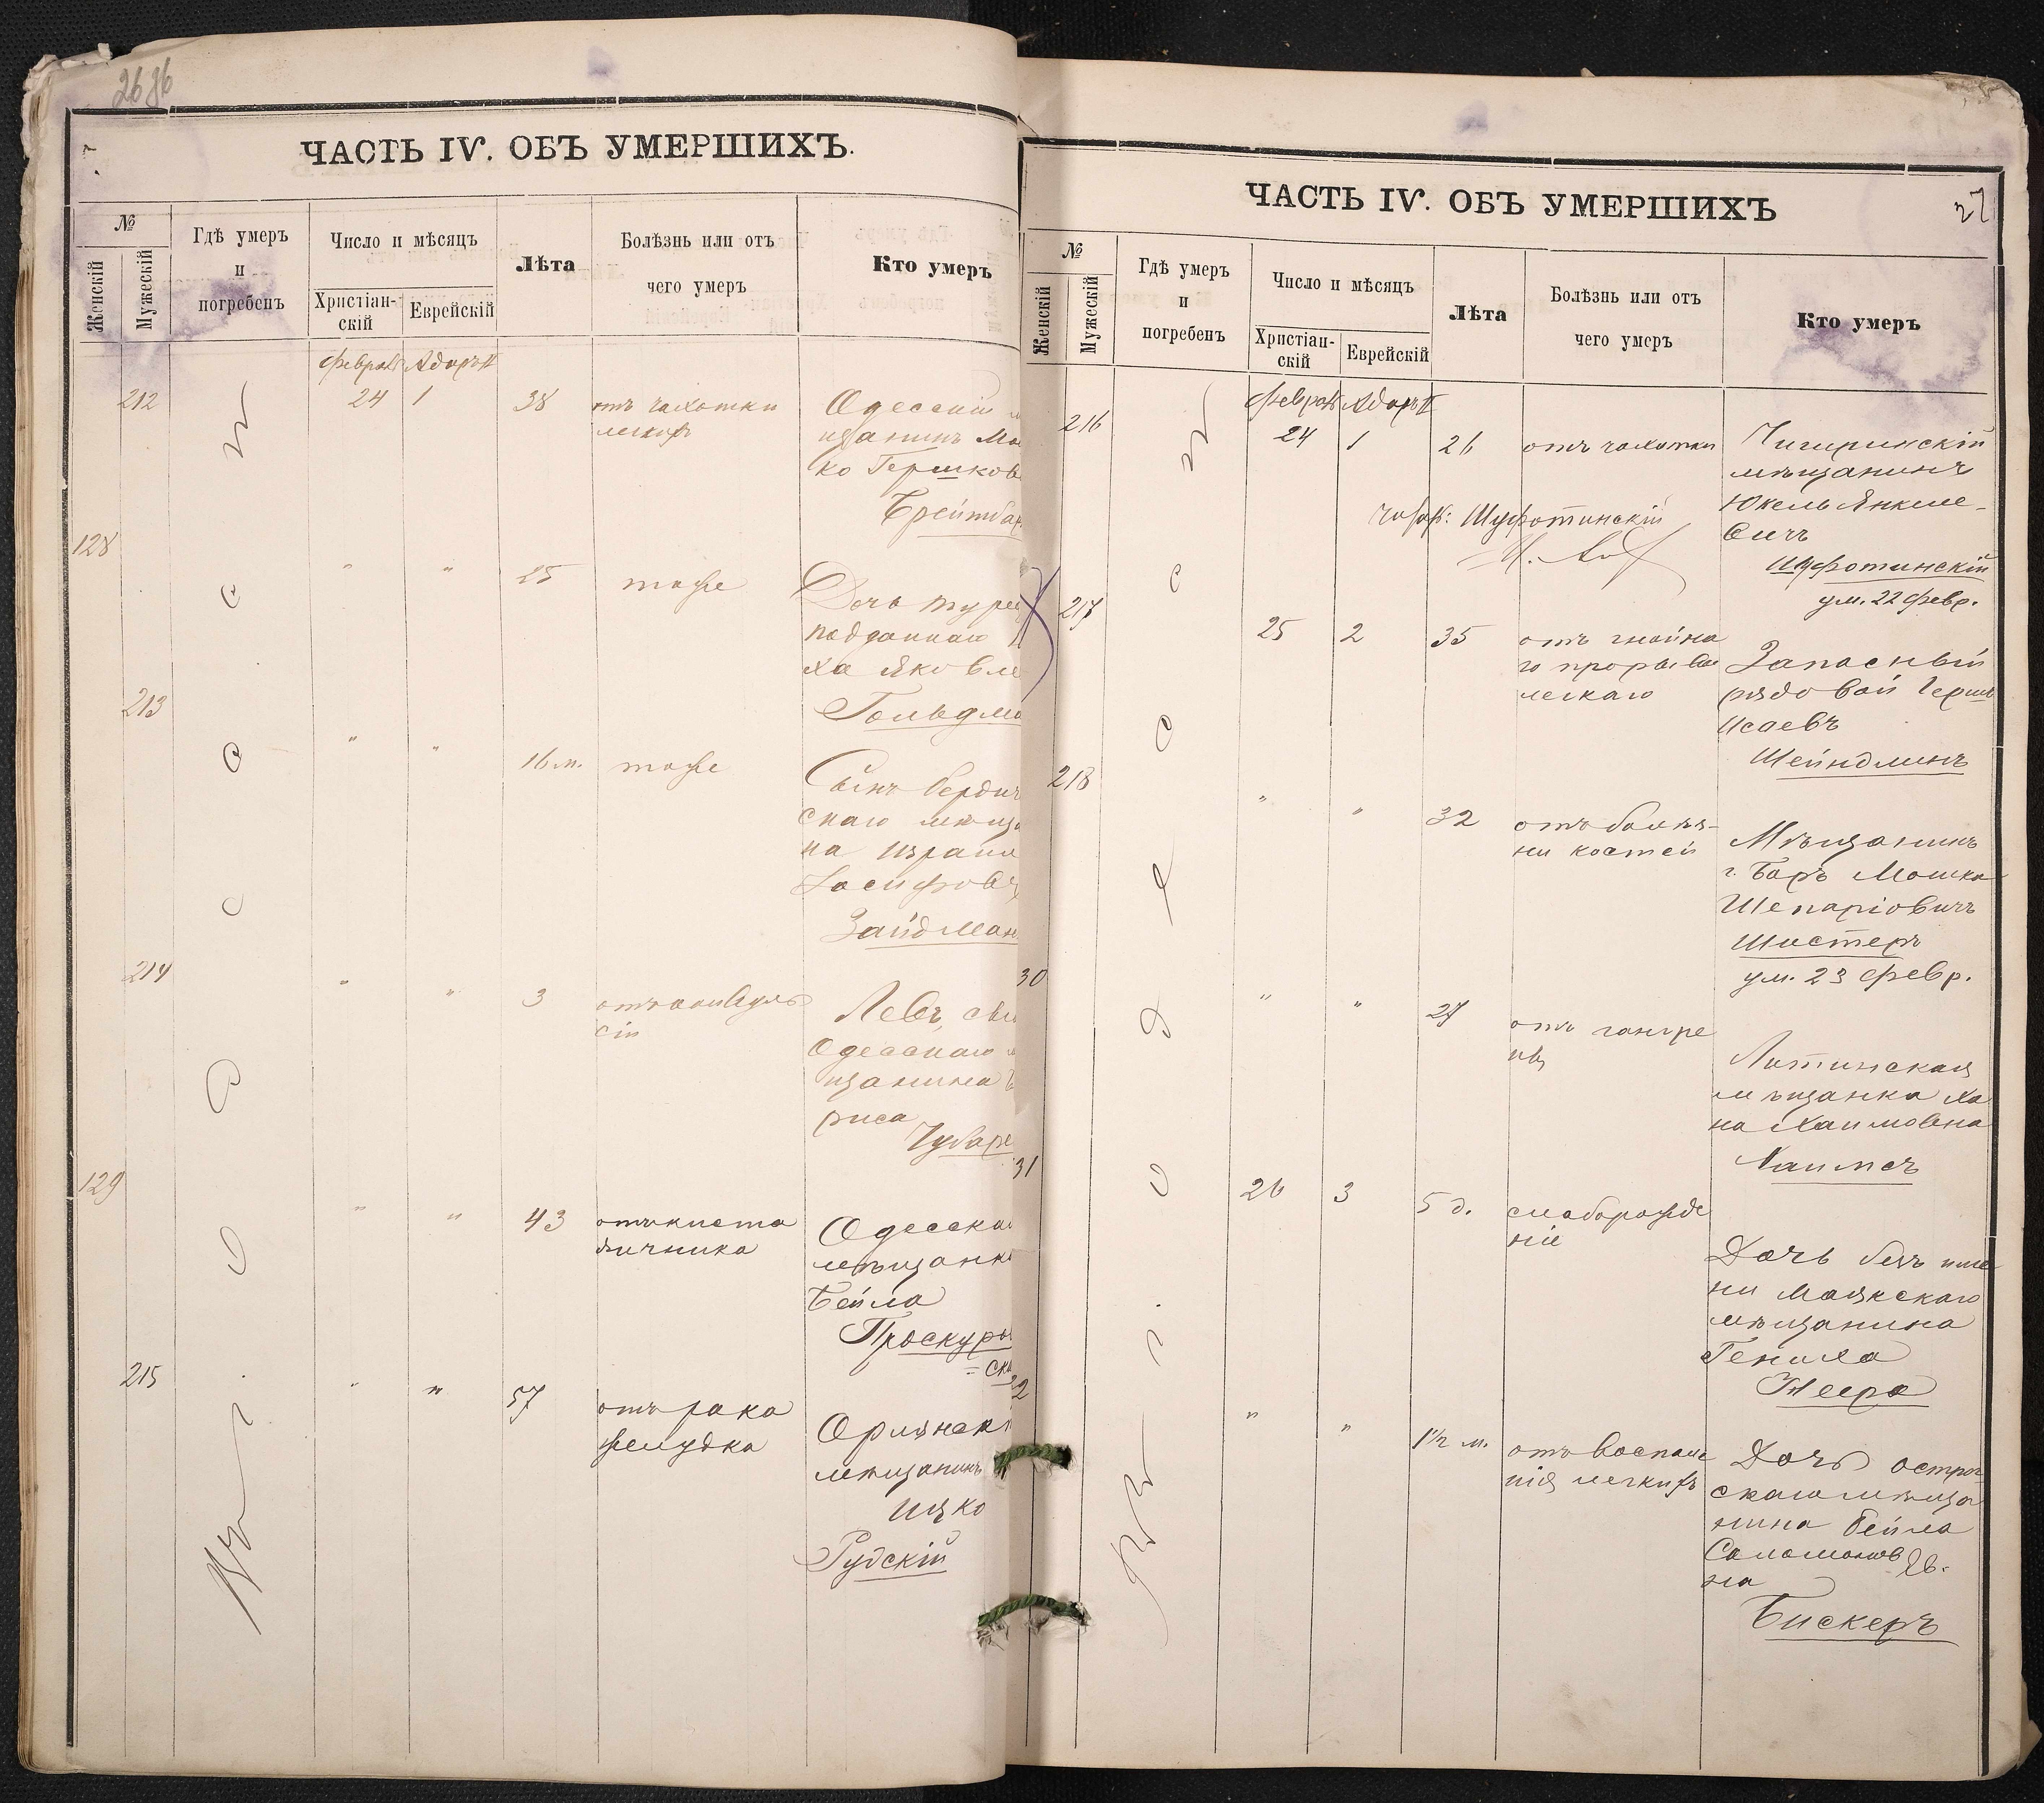 26 об
ЧАСТЬ IV. ОБЪ УМЕРШИХЪ.
№
Женскій
Мужескій
Гдѣ умеръ
и
погребенъ
Число и мѣсяцъ
Христіан-
скій
Еврейскій
Лѣта
Болѣзнь или отъ
чего умеръ
Кто умеръ
Феврал Адаръ II
212
24
1
38
отъ чахотки
легкихъ
Одесскій м
щанинъ Мош
ко Гершков
Брейтбар
128
"
"
25
тоже
Дочь турец
подданнаго
ха Яковле
Гольдма
213
"
"
16 м.
тоже
Сынъ бердич
скаго мѣща
на Израил
Іосифовъ
Зайдман
214
"
"
3
отъ конвуль
сій
Левъ, сын
Одесскаго м
щанина Б
риса
Чубаре
129
"
"
43
отъ киста
яичника
Одесска
мѣщанк
Бейла
Проскуров
= ска
215
"
"
57
отъ рака
желудка
мѣщанинъ
Ицко
Рудскій
27
ЧАСТЬ IV. ОБЪ УМЕРШИХЪ
№
Женскій
Мужескій
Гдѣ умеръ
и
погребенъ
Число и мѣсяцъ
Христіан-
скій
Еврейскій
Лѣта
Болѣзнь или отъ
чего умеръ
Кто умеръ
Феврал Адаръ II
216
24
1
26
отъ чахотки
Чигиринскій
мѣщанинъ
Юкель Янкеле-
вичъ
Шуфотинскій
ум. 22 февр.
Шуфотинскій
217
25
2
35
отъ гнойна
го прорыва
легкаго
Запасный
рядовой Герш
Исаевъ
Шейндлинъ
218
"
"
32
отъ болѣз-
ни костей
Мѣщанинъ
г. Баръ Мошко
Шепаріовичъ
Шистеръ
ум. 23 февр.
30
"
"
27
отъ гангре
ны
Литинская
мѣщанка Ха
на Хаимовна
Хаимсъ
31
26
3
5 д.
слаборожде
ніе
Дочь безъ име
ни Маякскаго
мѣщанина
Генила
2
"
"
1½ м.
отъ воспале
нія легкихъ
Дочь острог
скаго мѣща
нина Бейла
Соломонов
на
Бискеръ